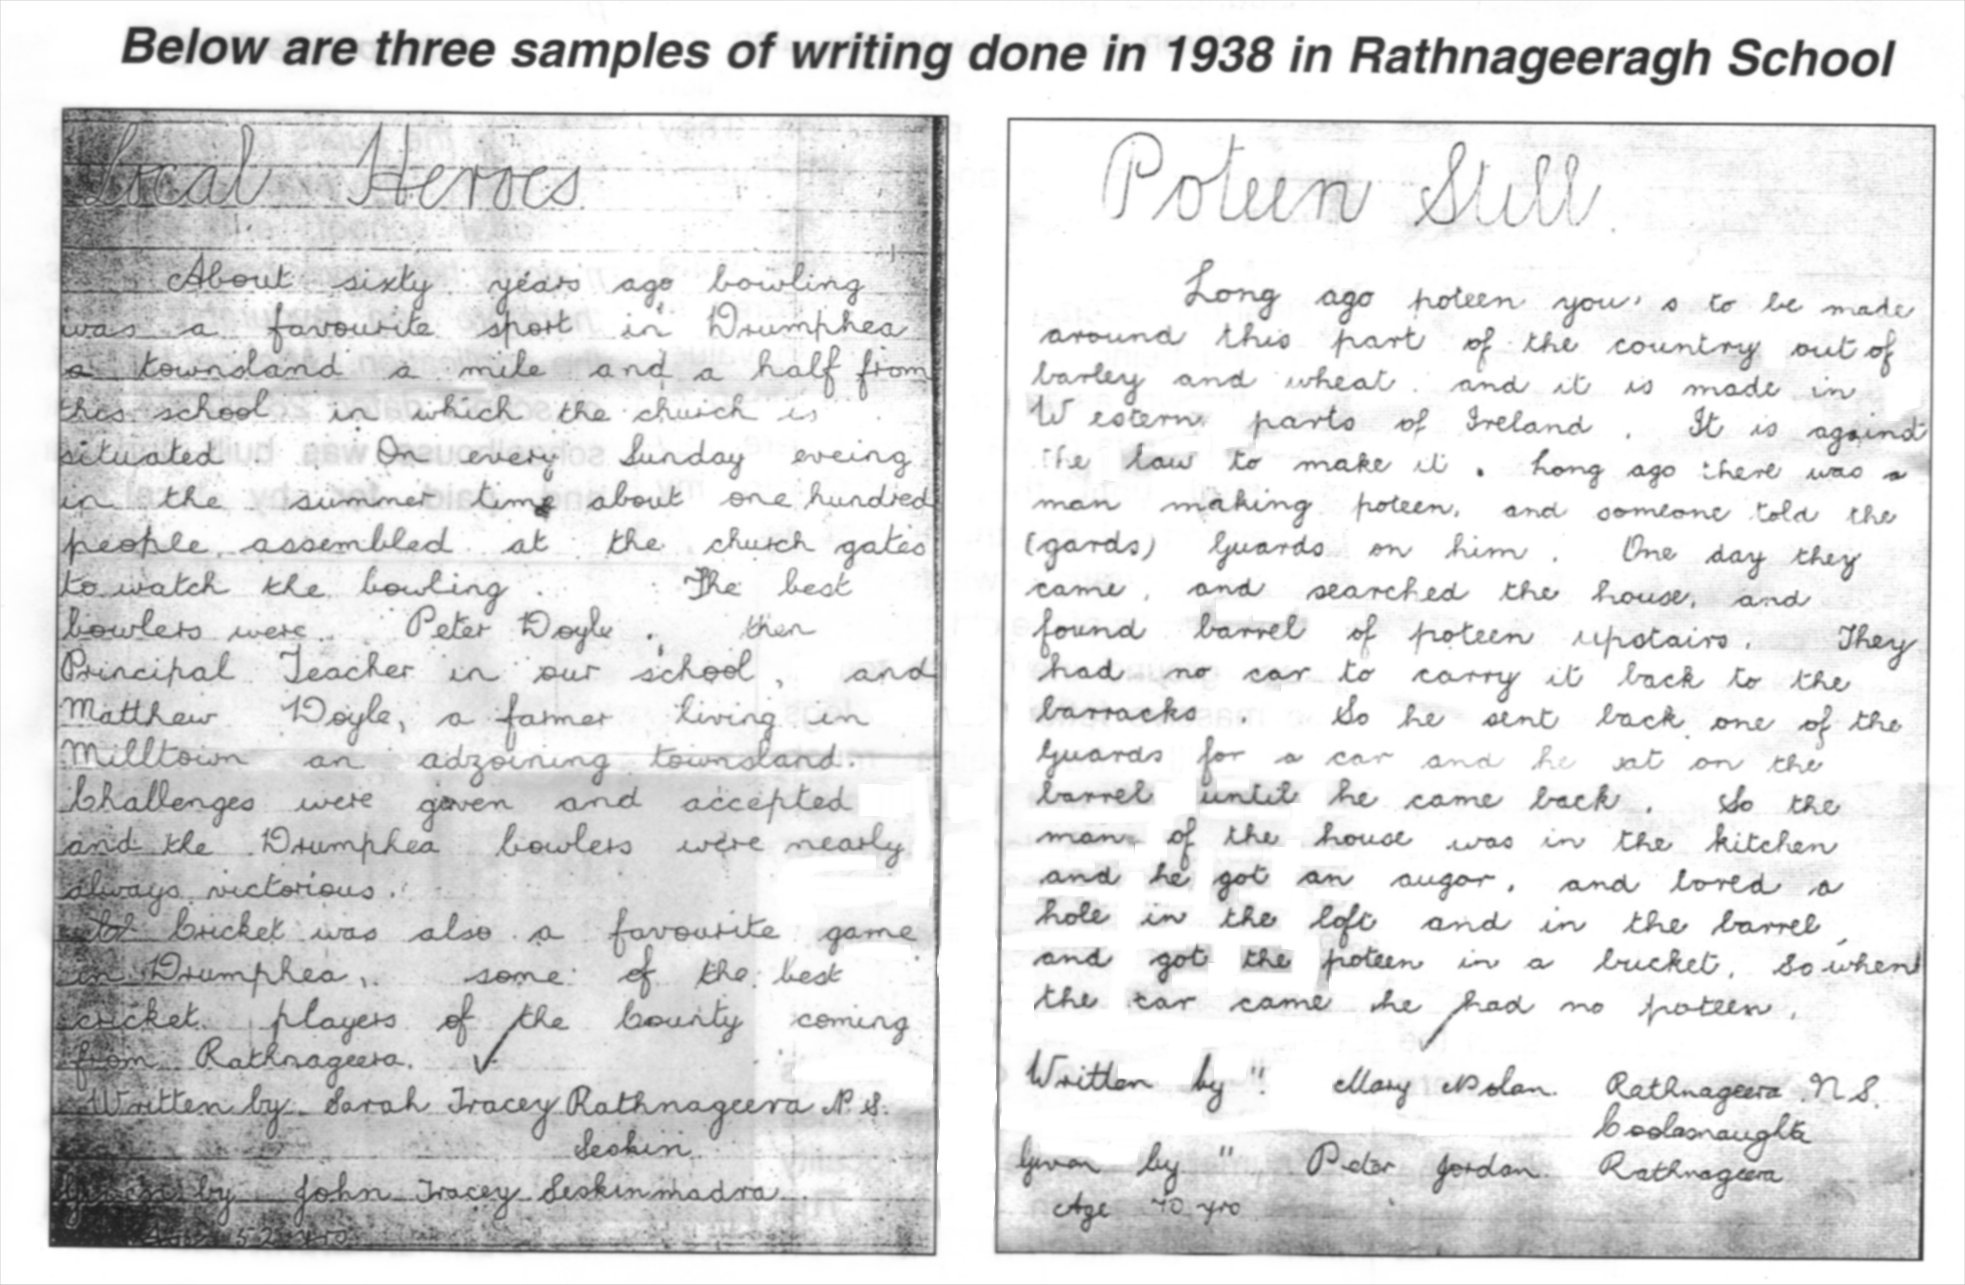 Below are three samples of writing done in 1938 in Rathnageeragh School
Local Heroes
About sixty years ago bowling
was a favourite sport in Drumphea
a townsland a mile and a half from
this school in which the church is
situated. On every Sunday eveing
in the summer time about one hundred
people assembled at the church gates
to watch the bowling. The best
bowlers were Peter Doyle, then
Principal Teacher in our school, and
Matthew Doyle, a farmer living in
Milltown an adzoining townsland.
Challenges were given and accepted
and the Drumphea bowlers were nearly
always victorious.
Cricket was also a favourite game
in Drumphea, some of the best
cricket players of the County coming
from Rathnageera.
Written by Sarah Tracey Rathnageera N.S.
Seskin
Given by John Tracey Seskinmadra.
Age 52 yrs
Poteen Still.
Long ago poteen you's to be made
around this part of the country out of
barley and wheat. and it is made in
Western parts of Ireland. It is againd
the law to make it. Long ago there was a
man making poteen, and someone told the
(gards) Guards on him. One day they
came, and searched the house, and
found barrel of poteen upstairs. They
had no car to carry it back to the
barracks. So he sent back one of the
Guards for a car and he sat on the
barrel until he came back. So the
man of the house was in the kitchen
and he got an augor, and bored a
hole in the loft and in the barrel,
and got the poteen in a bucket. So when
the car came he had no poteen.
Written by ". Mary Nolan. Rathnageera N.S.
Coolasnaughta
Given by " Peter Jordan Rathnageera
Age 70 yrs